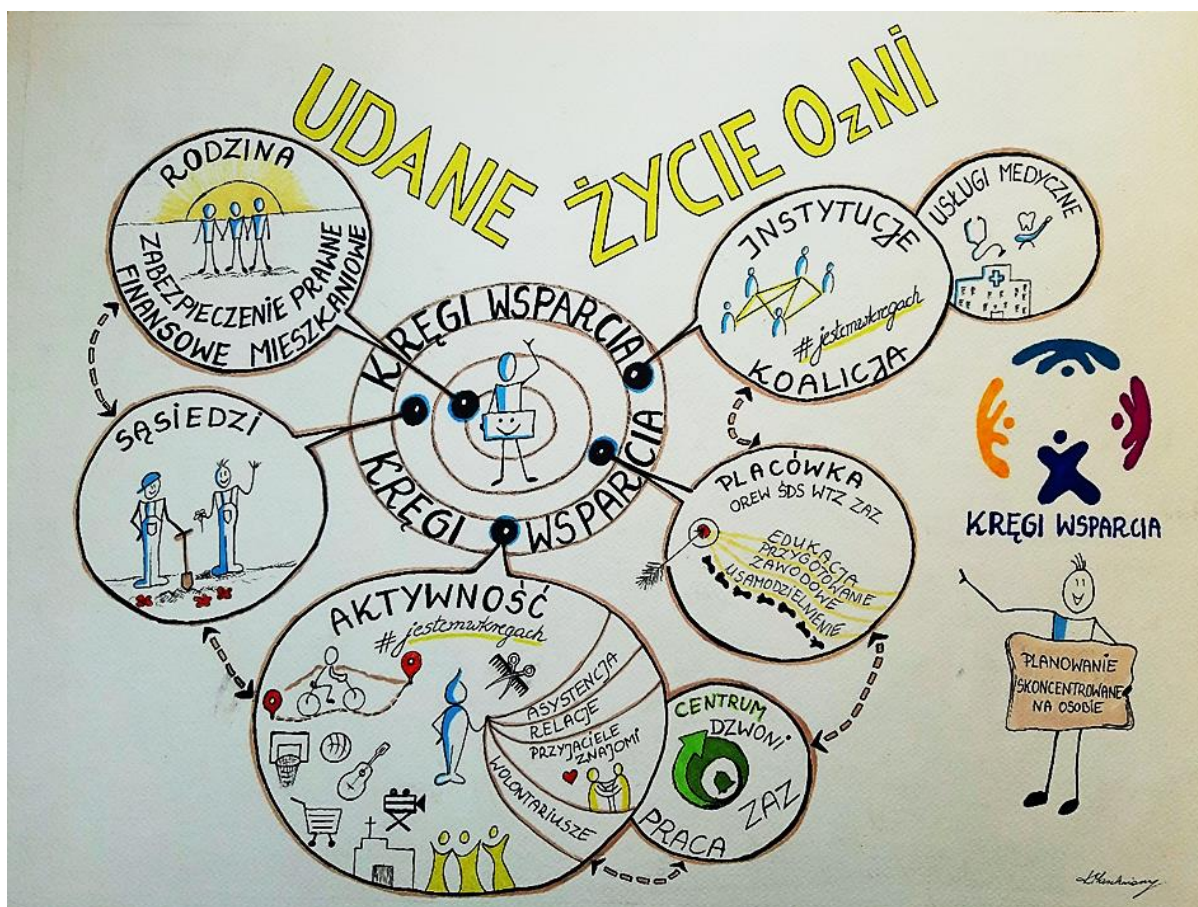 UDANE ŻYCIE OzNI
RODZINA
ZABEZPIECZENIE PRAWNE
FINANSOWE MIESZKANIOWE
SĄSIEDZI
KRĘGI WSPARCIA
KRĘGI WSPARCIA
INSTYTUCJE
#jestemwkregach
KOALICJA
USŁUGI MEDYCZNE
PLACÓWKA
OREW ŚDS WTZ ZAZ
EDUKACJA
PRZYGOTOWANIE
ZAWODOWE
USAMODZIELNIENIE
AKTYWNOŚĆ
#jestemwkregach
ASYSTENCJA
RELACJE
PRZYJACIELE
ZNAJOMI
WOLONTARIUSZE
CENTRUM
DZWONI
ZAZ
PRACA
KRĘGI WSPARCIA
PLANOWANIE
SKONCENTROWANE
NA OSOBIE